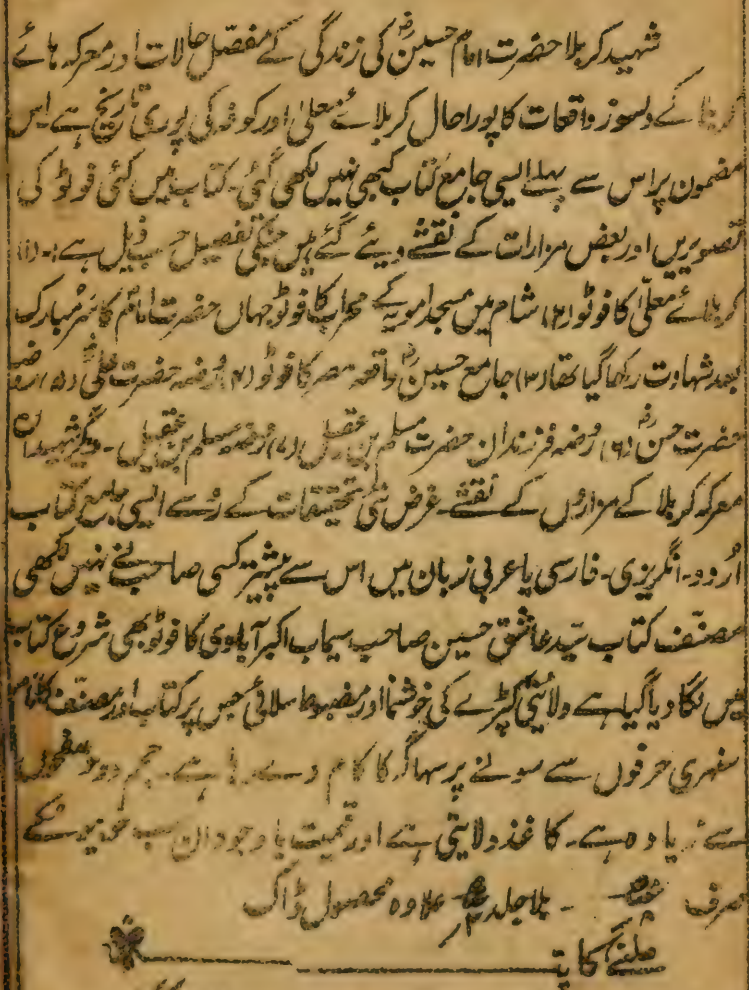 شہید کربلا حضرت امام حسینؓ کی زندگی کے مفصّل حالات اور معرکہ ہائے
کربلا کے دلسوز واقعات کا پورا حال کربلائے معلیٰ اور کوفہ کی پوری تاریخ ہے اس
مضمون پر اس سے پہلے ایسی جامع کتاب کبھی نہیں لکھی گئی۔ کتاب میں کئی فوٹو کی
تصویریں اور بعض مزارات کے نقشے دیئے گئے ہیں جنکی تفصیل حسب ذیل ہے:۔ (۱)
کربلائے معلّیٰ کا فوٹو (۲) شام میں مسجد امویہ کے محراب کا فوٹو جہاں حضرت امامؑ کا سر مبارک
بعد شہادت رکھا گیا تھا (۳) جامع حسینؓ واقعہ مصر کا فوٹو (۴) روضہ حضرت علیؓ (۵) روضہ
حضرت حسنؓ (۶) روضہ فرزندان حضرت مسلم بن عقیل (۷) روضہ مسلم بن عقیل۔ دیگر شہیدان
معرکہ کربلا کے مزاروں کے نقشے۔ غرض نئی تحقیقات کے رُو سے ایسی جامع کتاب
اُردو۔ انگریزی۔ فارسی یا عربی زبان میں اس سے پیشتر کسی صاحب نے نہیں لکھی
مصنّف کتاب سیّد عاشق حسین صاحب سیماب اکبر آبادی کا فوٹو بھی شروع کتاب
میں لگا دیا گیا ہے ولائتی کپڑے کی خوشنما اور مضبوط سلائی جس پر کتاب اور مصنّف کا نام
سنہری حرفوں سے سونے پر سہاگہ کا کام دے رہا ہے۔ حجم دو سو صفحوں
سے زیادہ ہے۔ کاغذ ولایتی ہے اور قیمت باوجود ان سب خوبیوں کے
صرف ۔ بلا جلد علاوہ محصول ڈاک
ملنے کا پتہ